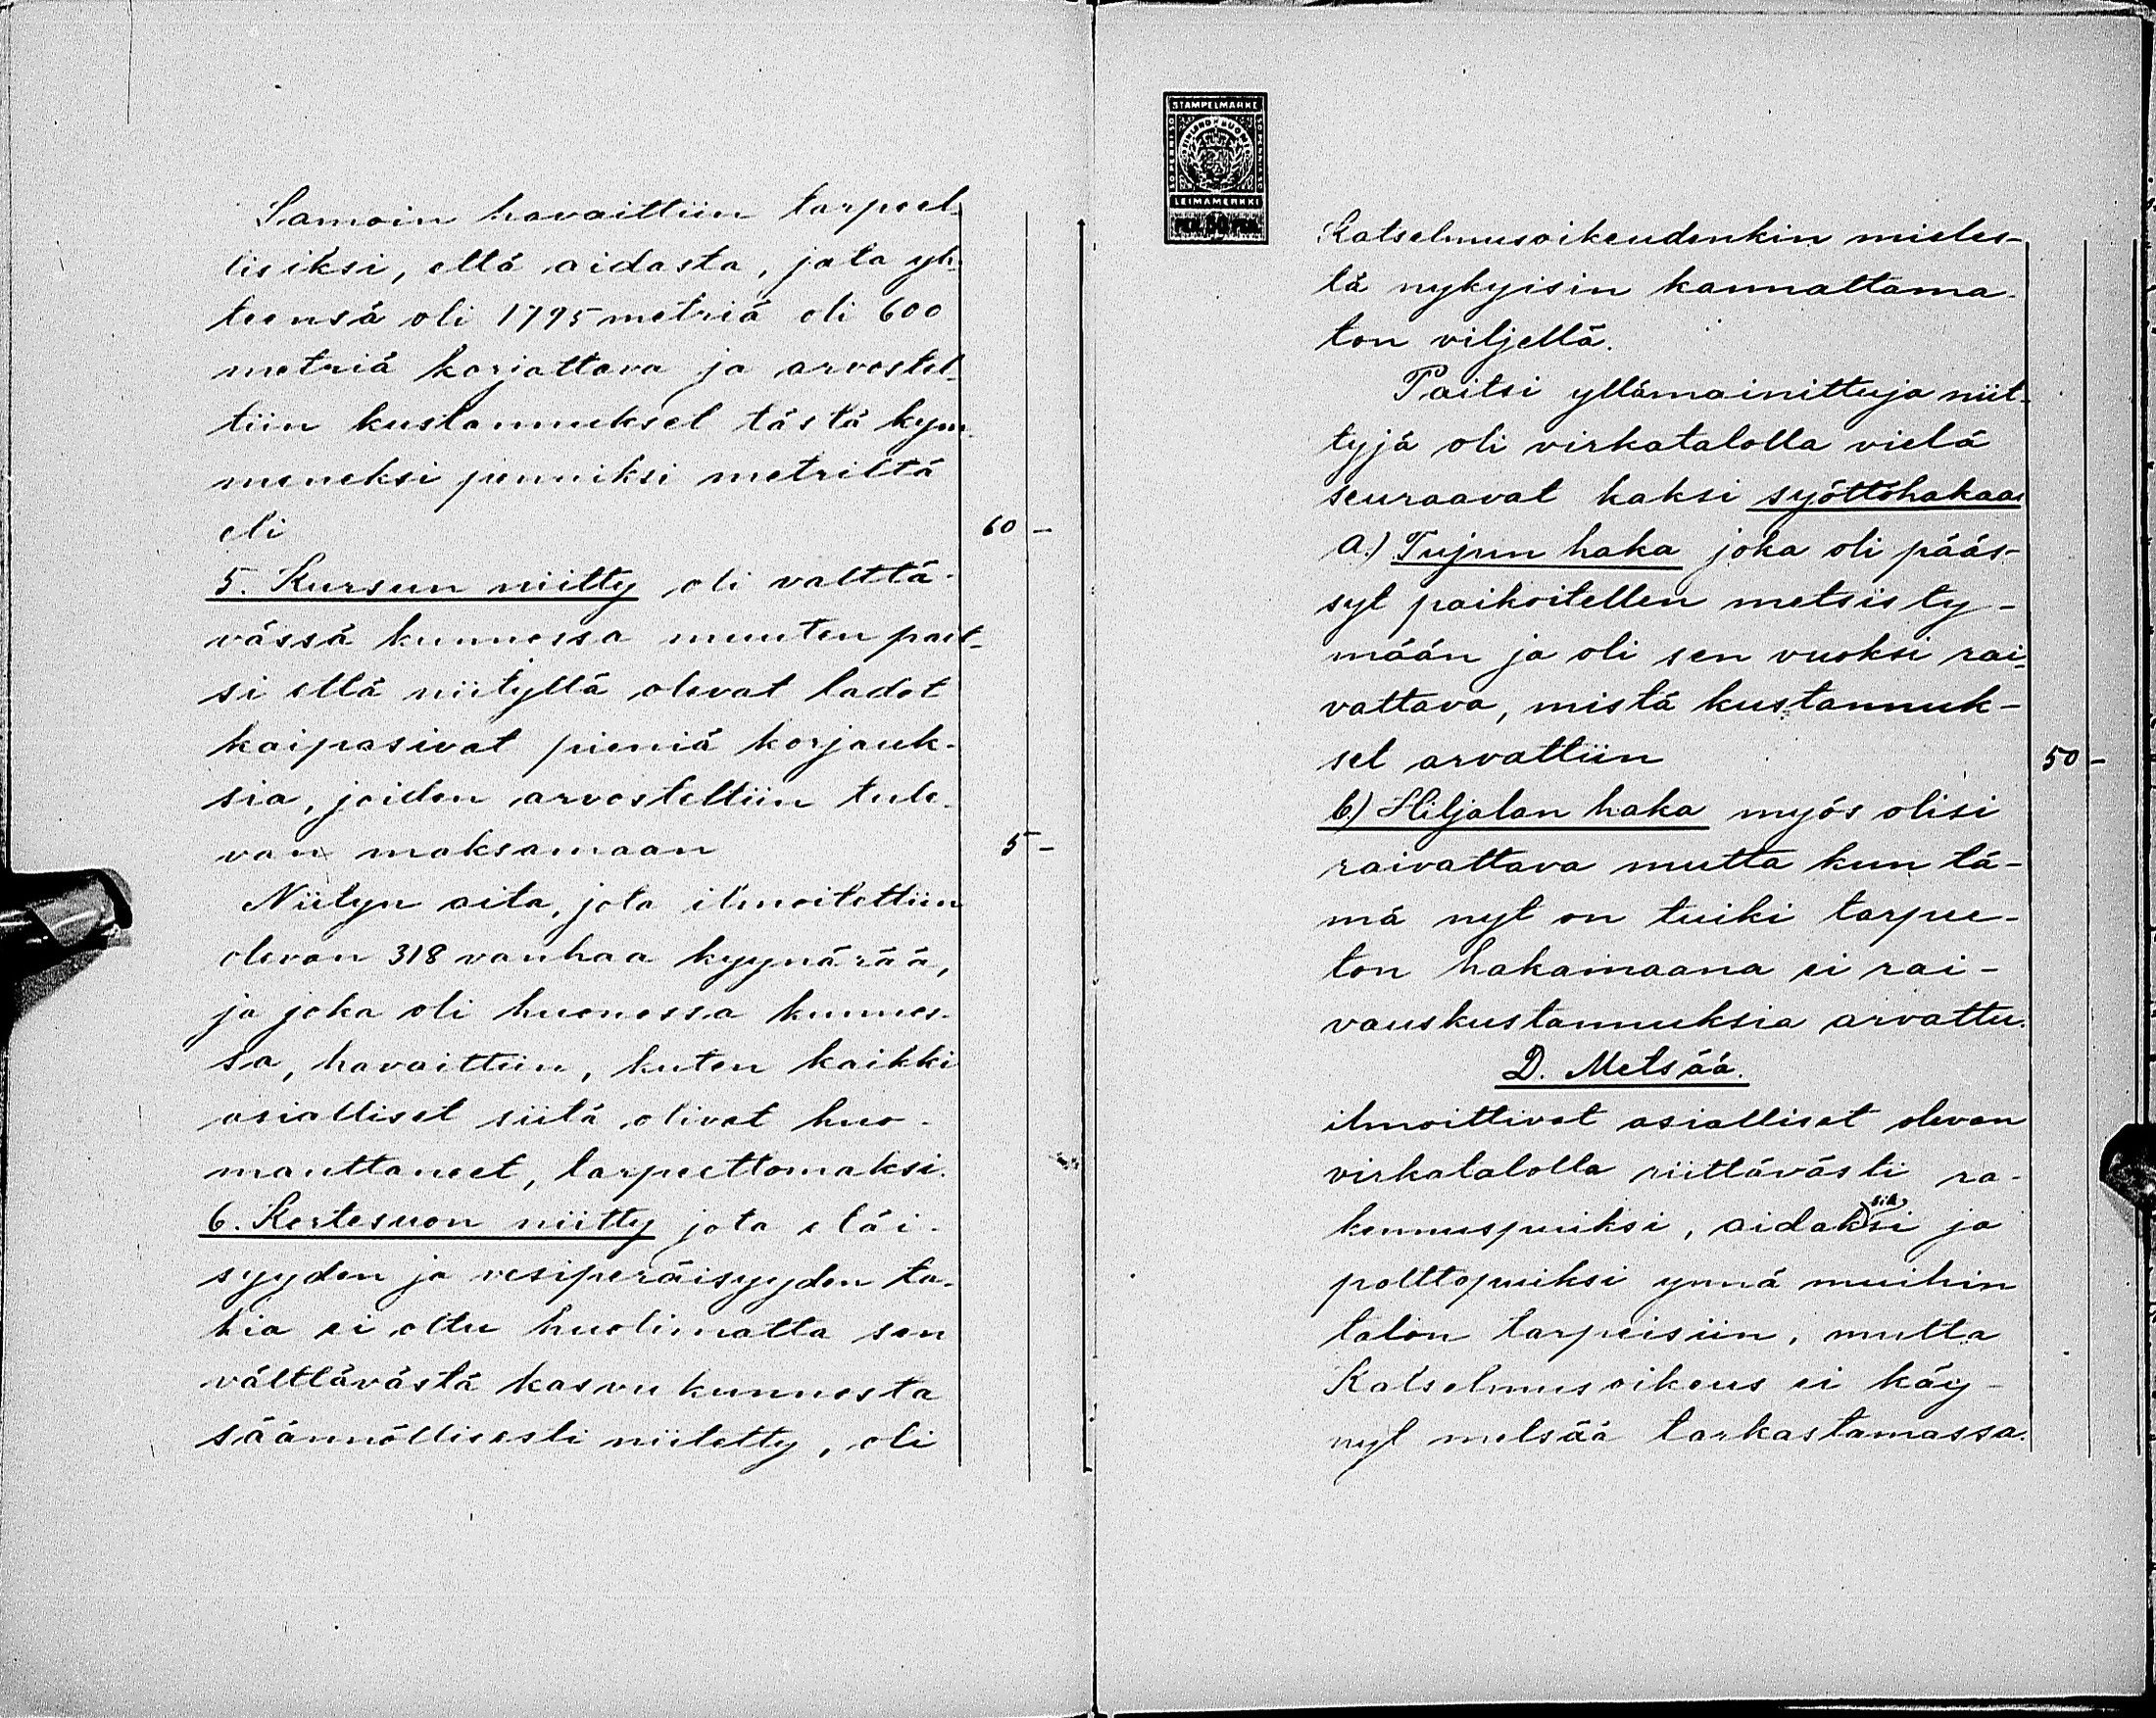 Samoin havaittiin tarpeel-
lisiksi, että aidasta, jota yh-
teensä oli 1795 metriä oli 600
metriä korjattava ja arvostel-
tiin kustannukset tästä kym-
meneksi penniksi metriltä
eli 60 -
5. Kursun niitty oli valttä-
vässä kunnossa muuten pait-
si että niityllä olevat ladot
kaipasivat pieniä korjauk-
sia, joiden arvosteltiin tule-
van maksamaan 5 -
Niityn aita, jota ilmoitettiin
olevan 318 vanhaa kyynärää,
ja joka oli huonossa kunnos-
sa, havaittiin, kuten kaikki
asialliset siitä olivat huo-
mauttaneet, tarpeettomaksi.
6. Kertesuon niitty jota etäi-
syyden ja vesiperäisyyden ta-
kia ei oltu huolimatta sen
välttävästä kasvukunnosta
säännöllisesti niitetty, oli
STAMPELMARKE
FINLAND SUOMI
LEIMAMERKKI
PEN. 50 PEN.
Katselmusoikeudenkin mieles-
tä nykyisin kannattama-
ton viljellä.
Paitsi yllämainittuja niit-
tyjä oli virkatalolla vielä
seuraavat kaksi syöttöhakaa
a.) Tujun haka joka oli pääs-
syt paikoitellen metsisty-
mään ja oli sen vuoksi rai-
vattava, mistä kustannuk-
set arvattiin 50 -
b.) Hiljalan haka myös olisi
raivattava mutta kun tä-
mä nyt on tuiki tarpee-
ton hakamaana ei rai-
vauskustannuksia arvattu.
D. Metsää.
ilmoittivat asialliset olevan
virkatalolla riittävästi ra-
kennuspuiksi, aidaksi ja
polttopuiksi ynnä muihin
talon tarpeisiin, mutta
Katselmusoikeus ei käy-
nyt metsää tarkastamassa.